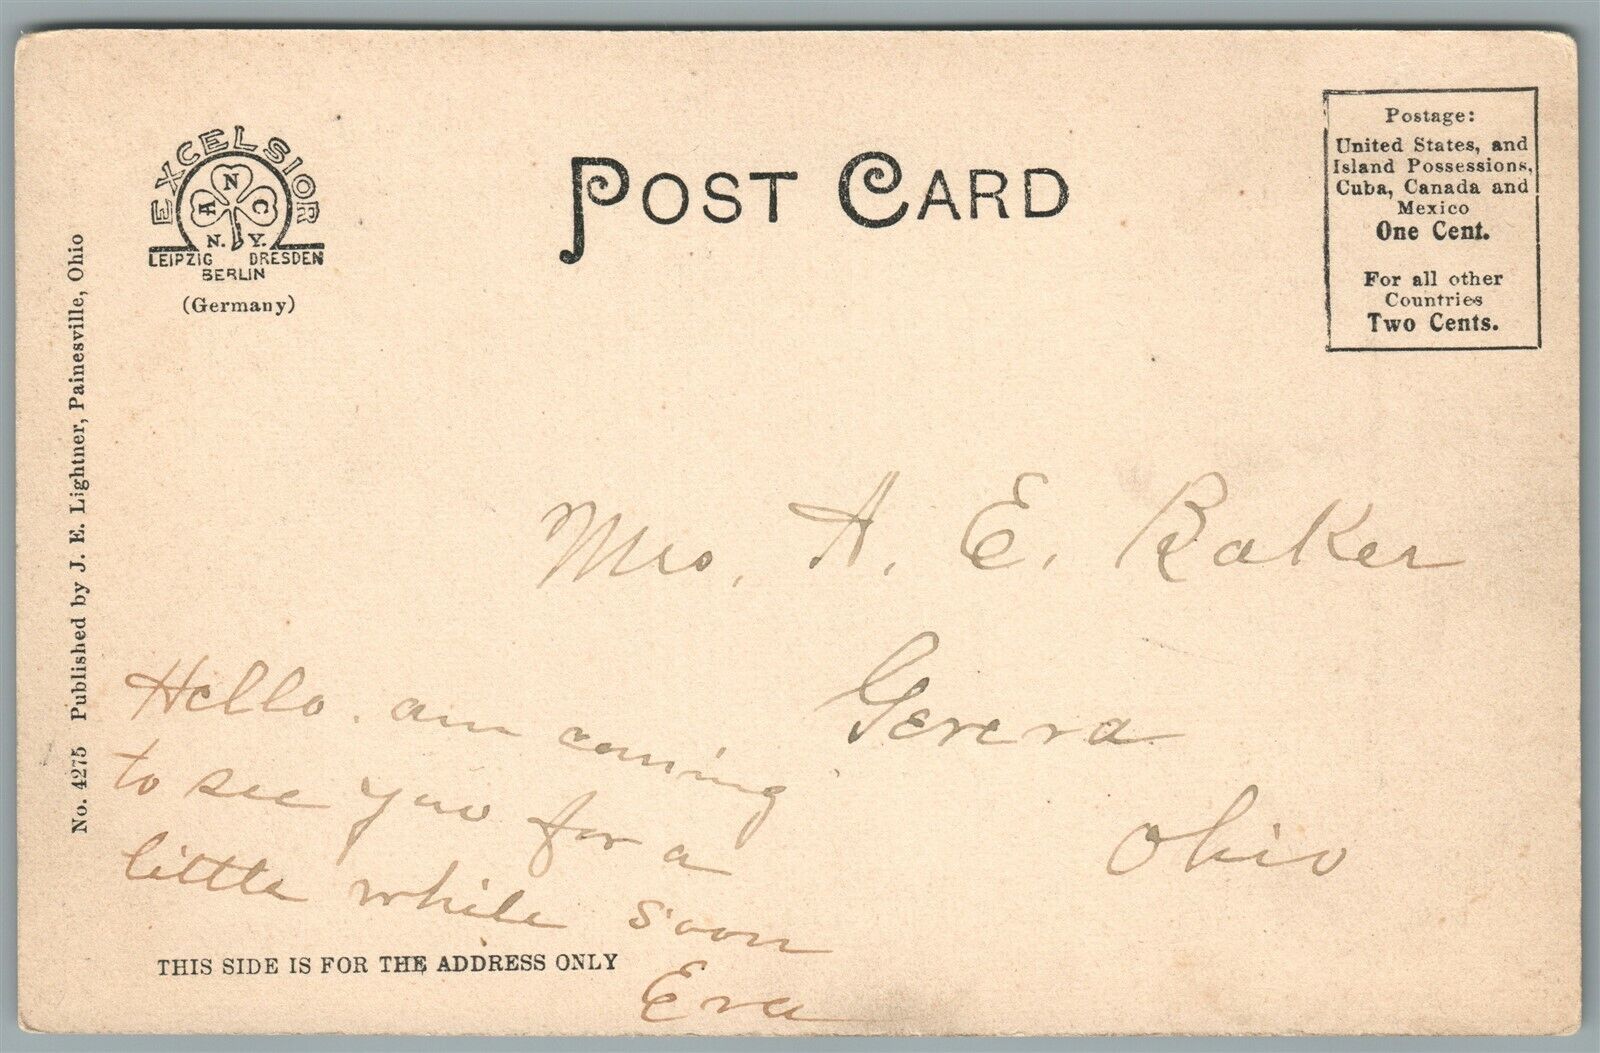 EXCELSIOR
A N C
N. Y.
LEIPZIG DRESDEN
BERLIN
(Germany)
POST CARD
Postage:
United States, and
Island Possessions,
Cuba, Canada and
Mexico
One Cent.
For all other
Countries
Two Cents.
No. 4275 Published by J. E. Lightner, Painesville, Ohio
Mrs. A. E. Baker
Geneva
Ohio
Hello. am coming
to see you for a
little while soon
Eva
THIS SIDE IS FOR THE ADDRESS ONLY